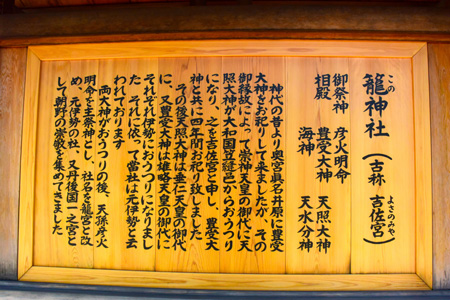 籠神社（古称 吉佐宮）
この
よさのみや
御祭神 彦火明命
相殿 豊受大神 天照大神
海神 天水分神
神代の昔より奥宮眞名井原に豊受
大神をお祀りして来ましたが、その
御縁故によって崇神天皇の御代に天
照大神が大和国笠縫邑からおうつり
になり、之を吉佐宮と申し、豊受大
神と共に四年間お祀り致しました
その後天照大神は垂仁天皇の御代
に、又豊受大神は雄略天皇の御代に
それぞれ伊勢におうつりになりまし
た、それに依って當社は元伊勢と云
われております
両大神がおうつりの後、天孫彦火
明命を主祭神とし、社名を籠宮と改
め、元伊勢の社、又丹後国一之宮と
して朝野の崇敬を集めてきました